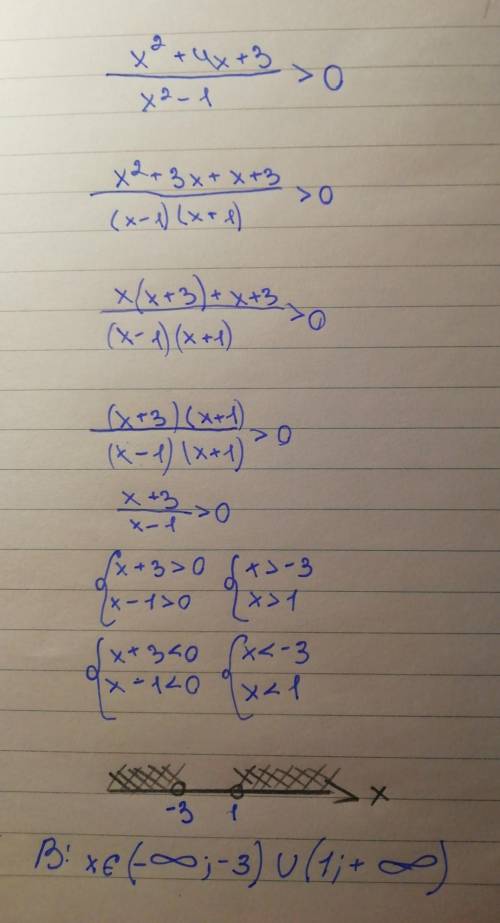 x² + 4x + 3
x² - 1
> 0
x² + 3x + x + 3
(x - 1)(x + 1)
> 0
x(x + 3) + x + 3
(x - 1)(x + 1)
> 0
(x + 3)(x + 1)
(x - 1)(x + 1)
> 0
x + 3
x - 1
> 0
{ x + 3 > 0 { x > -3
x - 1 > 0 x > 1
{ x + 3 < 0 { x < -3
x - 1 < 0 x < 1
x
-3 1
В: x ∈ (-∞; -3) ∪ (1; +∞)